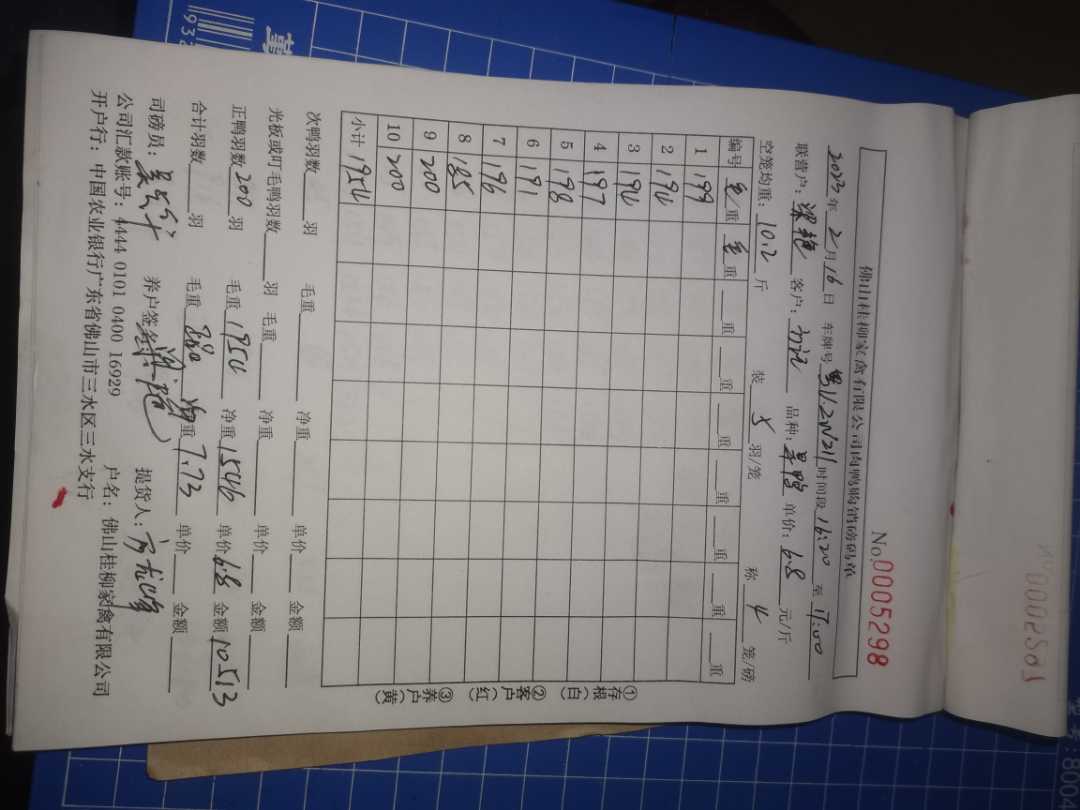 佛山桂柳家禽有限公司肉鸭购销磅码单
No.0005298
2023年2月16日 车牌号 时间段16:20至17:00
联营户:梁艳 客户: 品种: 单价:6.8元/斤
空笼均重:10.2斤 装5羽/笼 称4笼/磅
编号 毛重 毛重 重 重 重 重 重 重 重
1 199
2 194
3 194
4 197
5 198
6 191
7 196
8 185
9 200
10 200
小计 1954
①存根(白) ②客户(红) ③养户(黄)
次鸭羽数 羽 毛重 净重 单价 金额
光板或叮毛鸭羽数 羽 毛重 净重 单价 金额
正鸭羽数200羽 毛重1954 净重1546 单价6.8 金额10513
合计羽数 羽 毛重 重7.73 单价 金额
司磅员: 养户签名 提货人:
公司汇款账号:4444 0101 0400 16929 户名:佛山桂柳家禽有限公司
开户行:中国农业银行广东省佛山市三水区三水支行